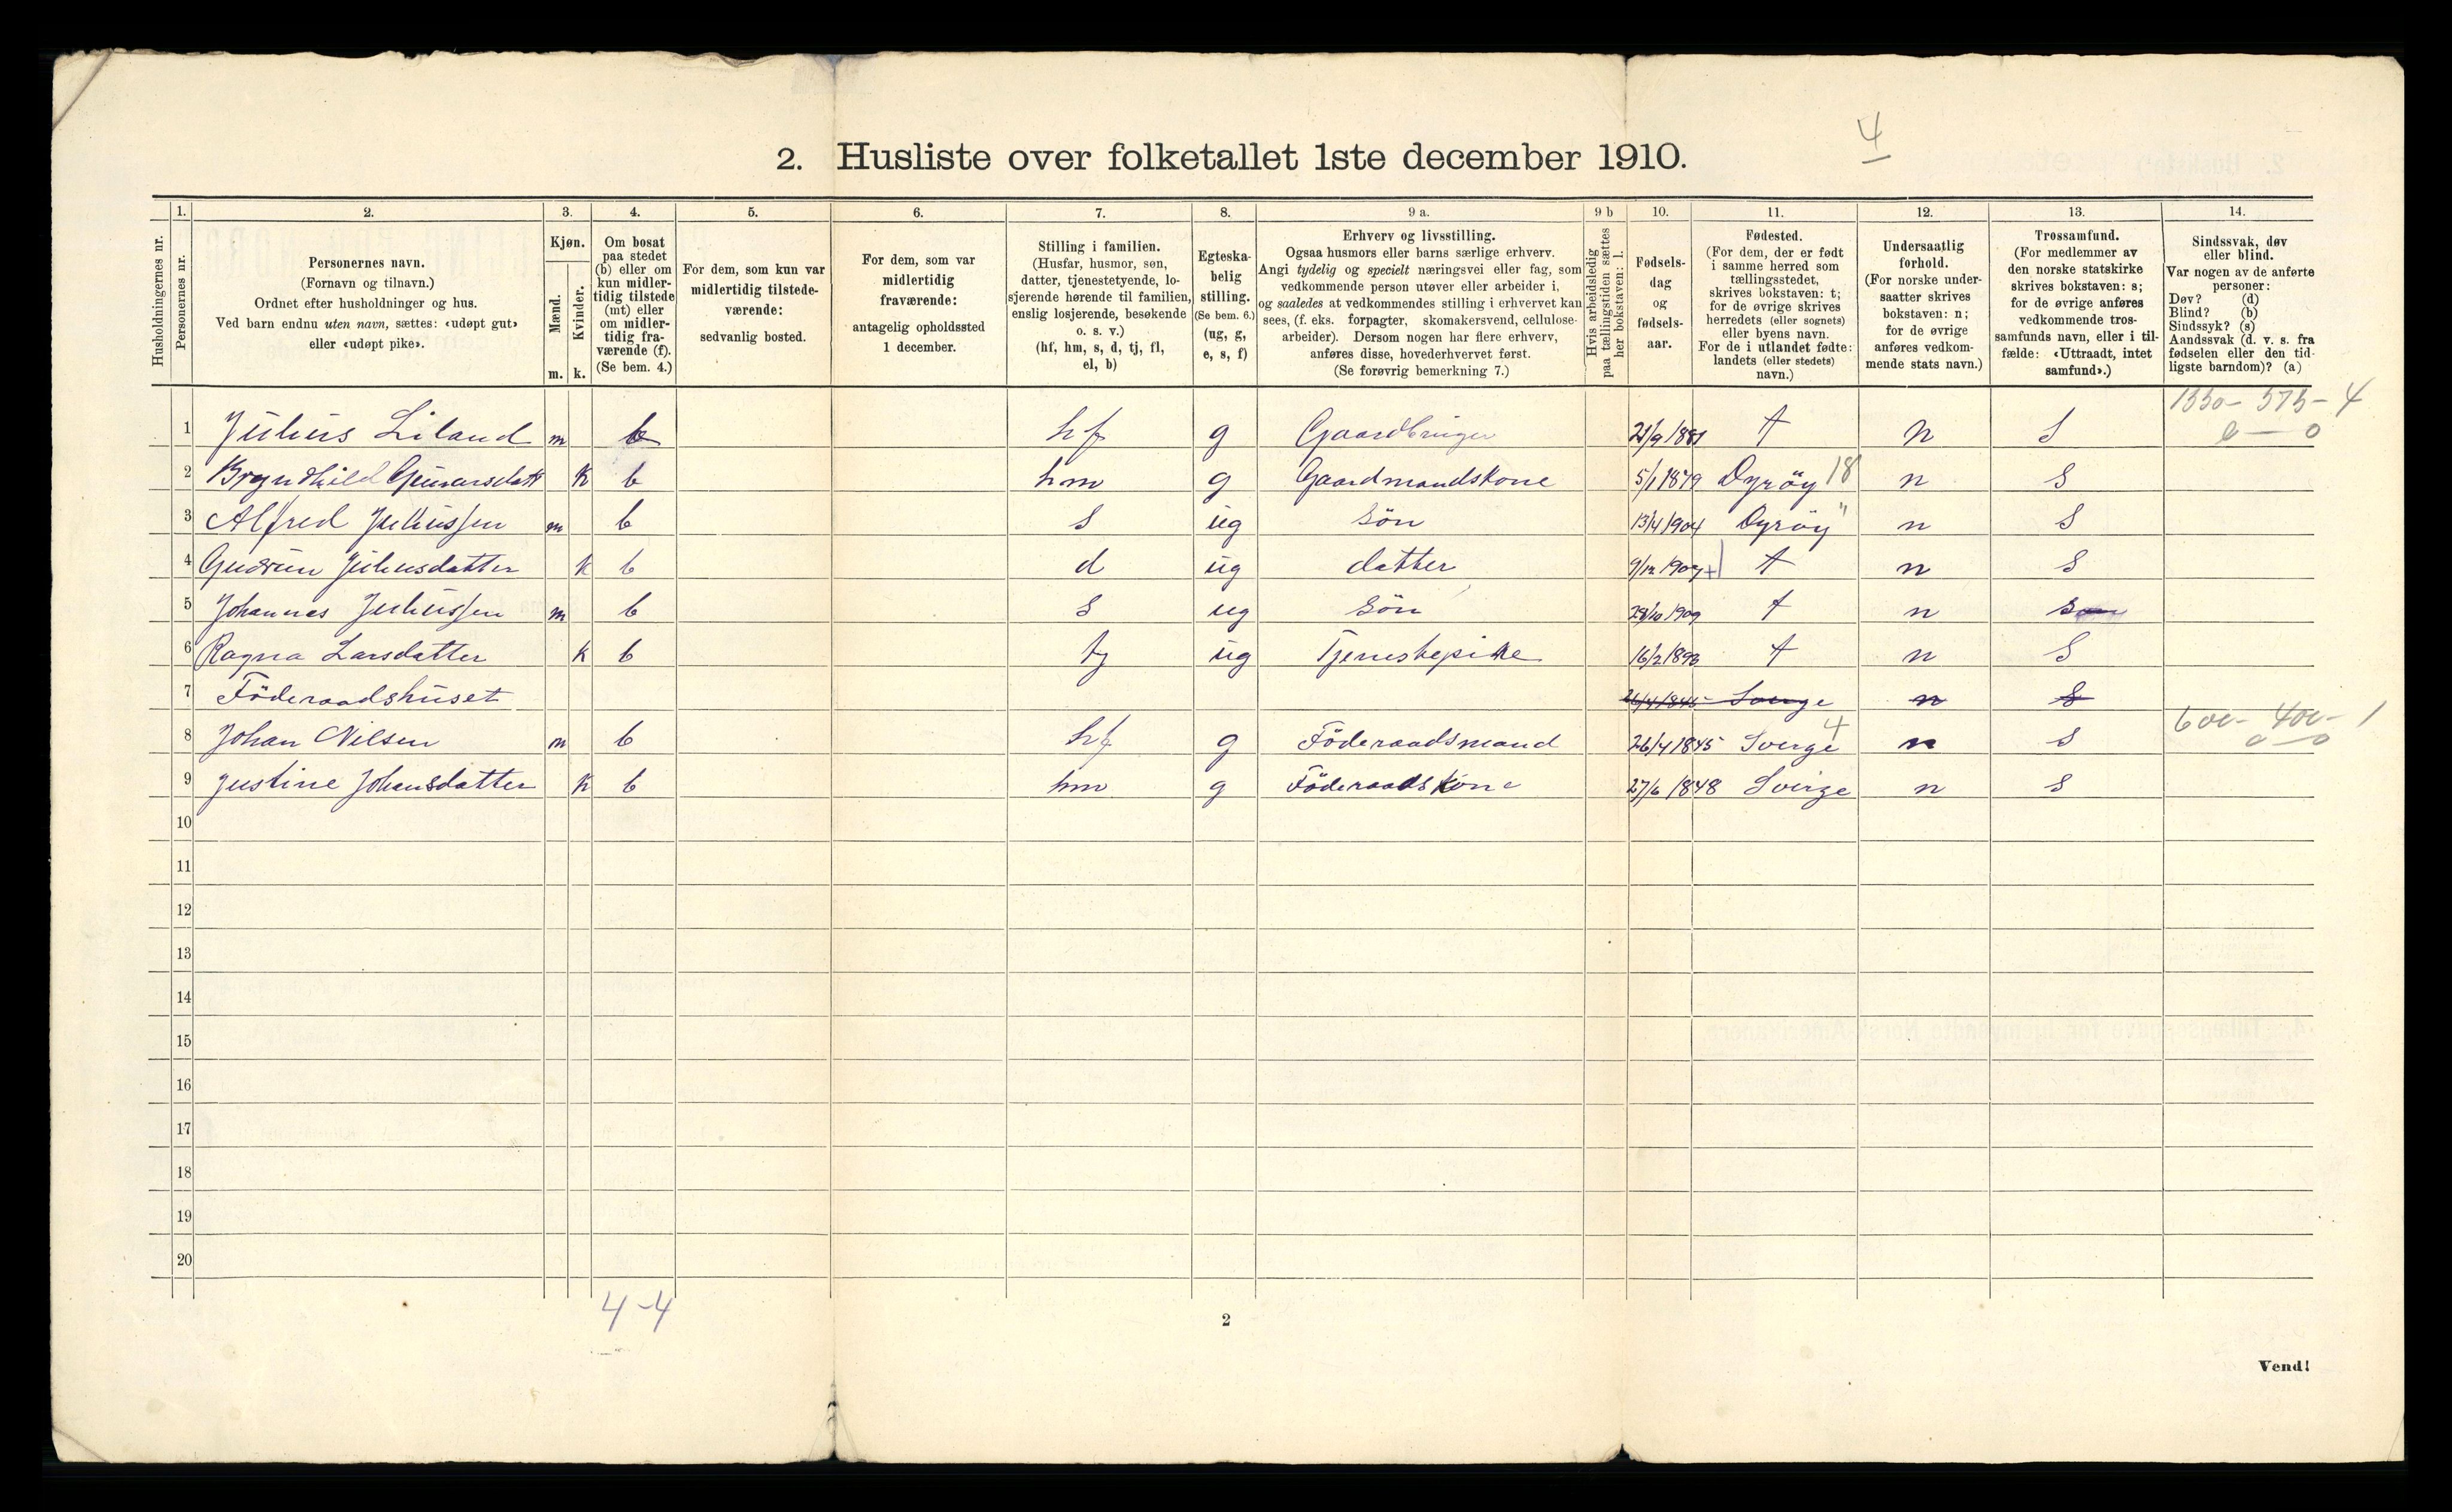 4
2. Husliste over folketallet 1ste december 1910.
1. 2. 3. 4. 5. 6. 7. 8. 9 a. 9 b 10. 11. 12. 13. 14.
Husholdningernes nr.
Personernes nr.
Personernes navn.
(Fornavn og tilnavn.)
Ordnet efter husholdninger og hus.
Ved barn endnu uten navn, sættes: «udøpt gut»
eller «udøpt pike».
Kjøn.
Mænd.
Kvinder.
m. k.
Om bosat
paa stedet
(b) eller om
kun midler-
tidig tilstede
(mt) eller
om midler-
tidig fra-
værende (f).
(Se bem. 4.)
For dem, som kun var
midlertidig tilstede-
værende:
sedvanlig bosted.
For dem, som var
midlertidig
fraværende:
antagelig opholdssted
1 december.
Stilling i familien.
(Husfar, husmor, søn,
datter, tjenestetyende, lo-
sjerende hørende til familien,
enslig losjerende, besøkende
o. s. v.)
(hf, hm, s, d, tj, fl,
el, b)
Egteska-
belig
stilling.
(Se bem. 6.)
(ug, g,
e, s, f)
Erhverv og livsstilling.
Ogsaa husmors eller barns særlige erhverv.
Angi tydelig og specielt næringsvei eller fag, som
vedkommende person utøver eller arbeider i,
og saaledes at vedkommendes stilling i erhvervet kan
sees, (f. eks. forpagter, skomakersvend, cellulose-
arbeider). Dersom nogen har flere erhverv,
anføres disse, hovederhvervet først.
(Se forøvrig bemerkning 7.)
Hvis arbeidsledig
paa tællingstiden sættes
her bokstaven: l.
Fødsels-
dag
og
fødsels-
aar.
Fødested.
(For dem, der er født
i samme herred som
tællingsstedet,
skrives bokstaven: t;
for de øvrige skrives
herredets (eller sognets)
eller byens navn.
For de i utlandet fødte:
landets (eller stedets)
navn.)
Undersaatlig
forhold.
(For norske under-
saatter skrives
bokstaven: n;
for de øvrige
anføres vedkom-
mende stats navn.)
Trossamfund.
(For medlemmer av
den norske statskirke
skrives bokstaven: s;
for de øvrige anføres
vedkommende tros-
samfunds navn, eller i til-
fælde: «Uttraadt, intet
samfund».)
Sindssvak, døv
eller blind.
Var nogen av de anførte
personer:
Døv? (d)
Blind? (b)
Sindssyk? (s)
Aandssvak (d. v. s. fra
fødselen eller den tid-
ligste barndom)? (a)
1350- 575- 4
0 — 0
1 Julius Liland m b hf g Gaardbruger 21/9 1881 t n S
2 Bryndhild Gunarsdatt k b hm g Gaardmandskone 5/1 1879 Dyröy 18 n S
3 Alfred Juliussen m b s ug Sön 13/4 1904 Dyröy " n S
4 Gudrun Juliusdatter k b d ug datter 9/12 1907 t n S
5 Johannes Juliussen m b s ug Sön 28/10 1909 t n s
6 Ragna Larsdatter k b tj ug Tjenestepike 16/2 1893 t n S
7 Föderaadshuset 26/4 1845 Sverge n S
600- 400- 1
0 — 0
8 Johan Nilsen m b hf g Föderaadsmand 26/4 1845 Sverge 4 n S
9 Justine Johansdatter k b hm g Föderaadskone 27/6 1848 Sverge n S
10
11
12
13
14
15
16
17
18
19
20
4-4
2
Vend!